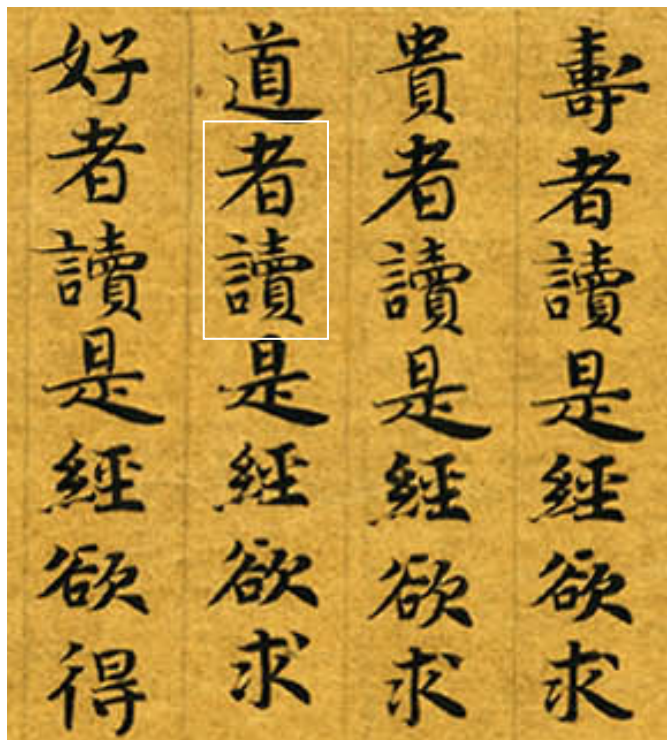 壽者讀是經欲求
貴者讀是經欲求
道者讀是經欲求
好者讀是經欲得